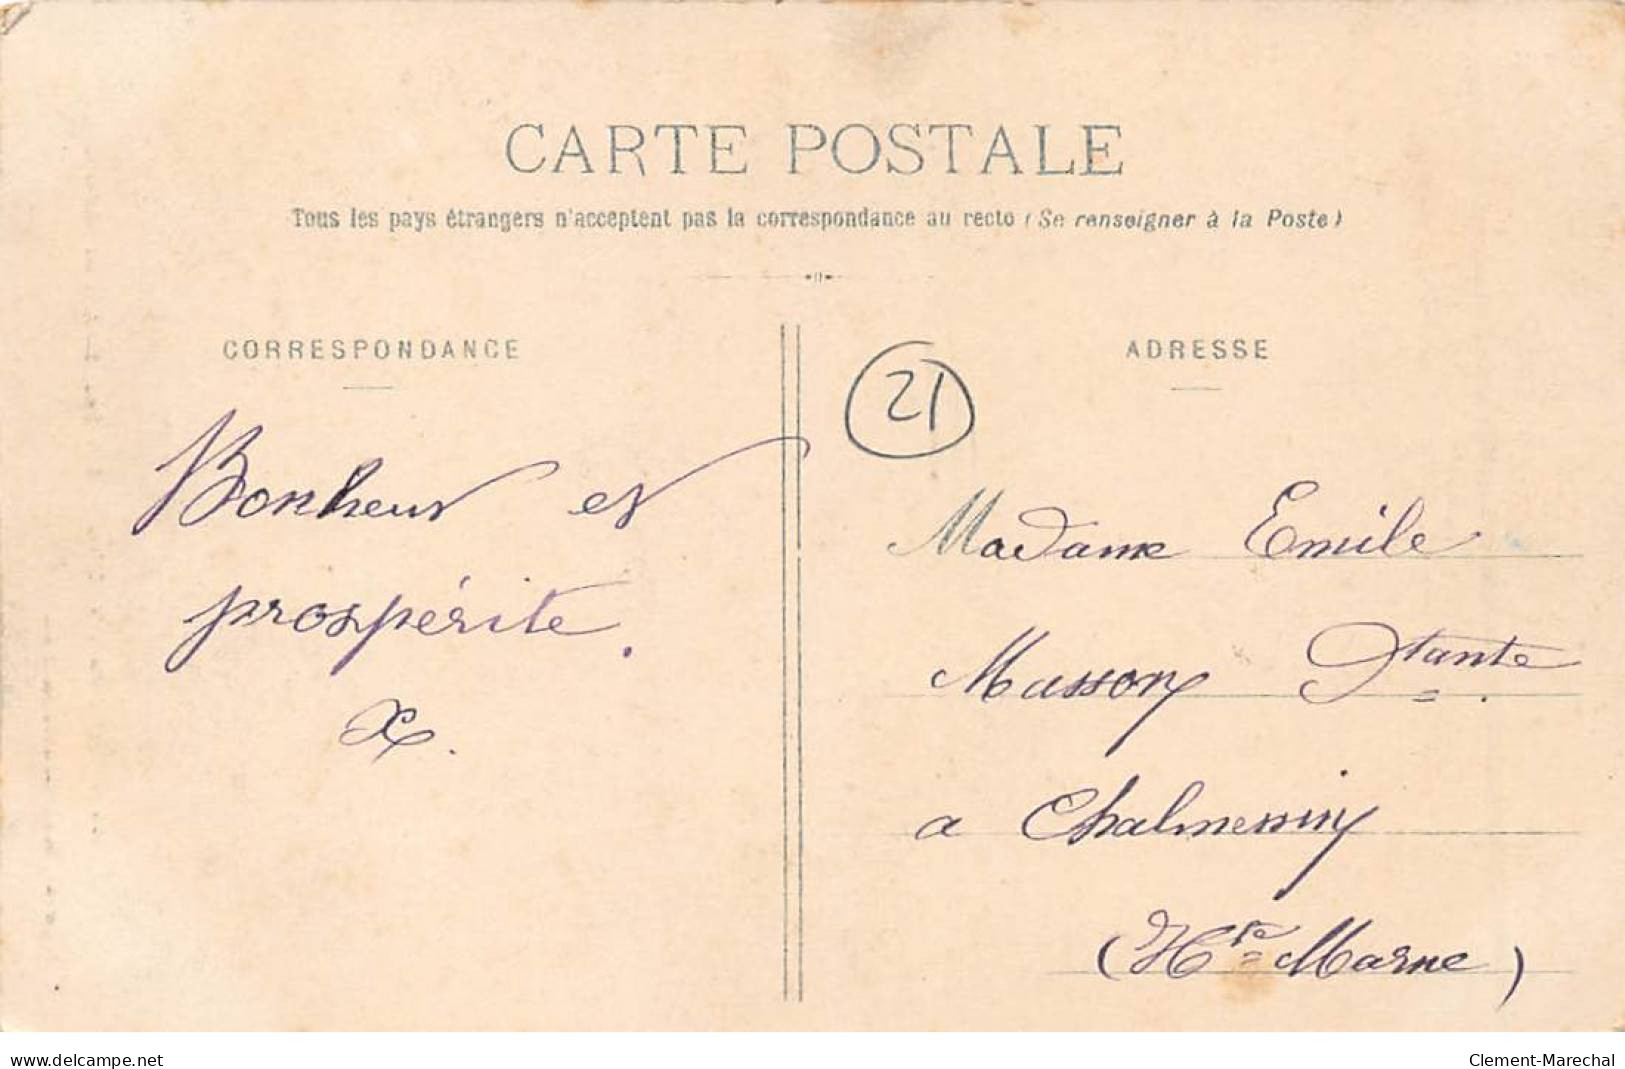 CARTE POSTALE
Tous les pays étrangers n'acceptent pas la correspondance au recto (Se renseigner à la Poste)
CORRESPONDANCE
Bonheur et
prospérité.
X.
ADRESSE
21
Madame Emile
Masson
a Chalmessin
(Hte Marne)
www.delcampe.net
Clement-Marechal